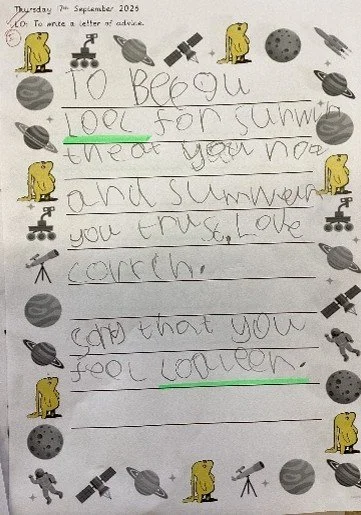 Thursday 7th September 2025
LO: To write a letter of advice.
To Beegu
Looc for sumwn
theat you noa
and sumwen
you trust. Love
say that you
feel